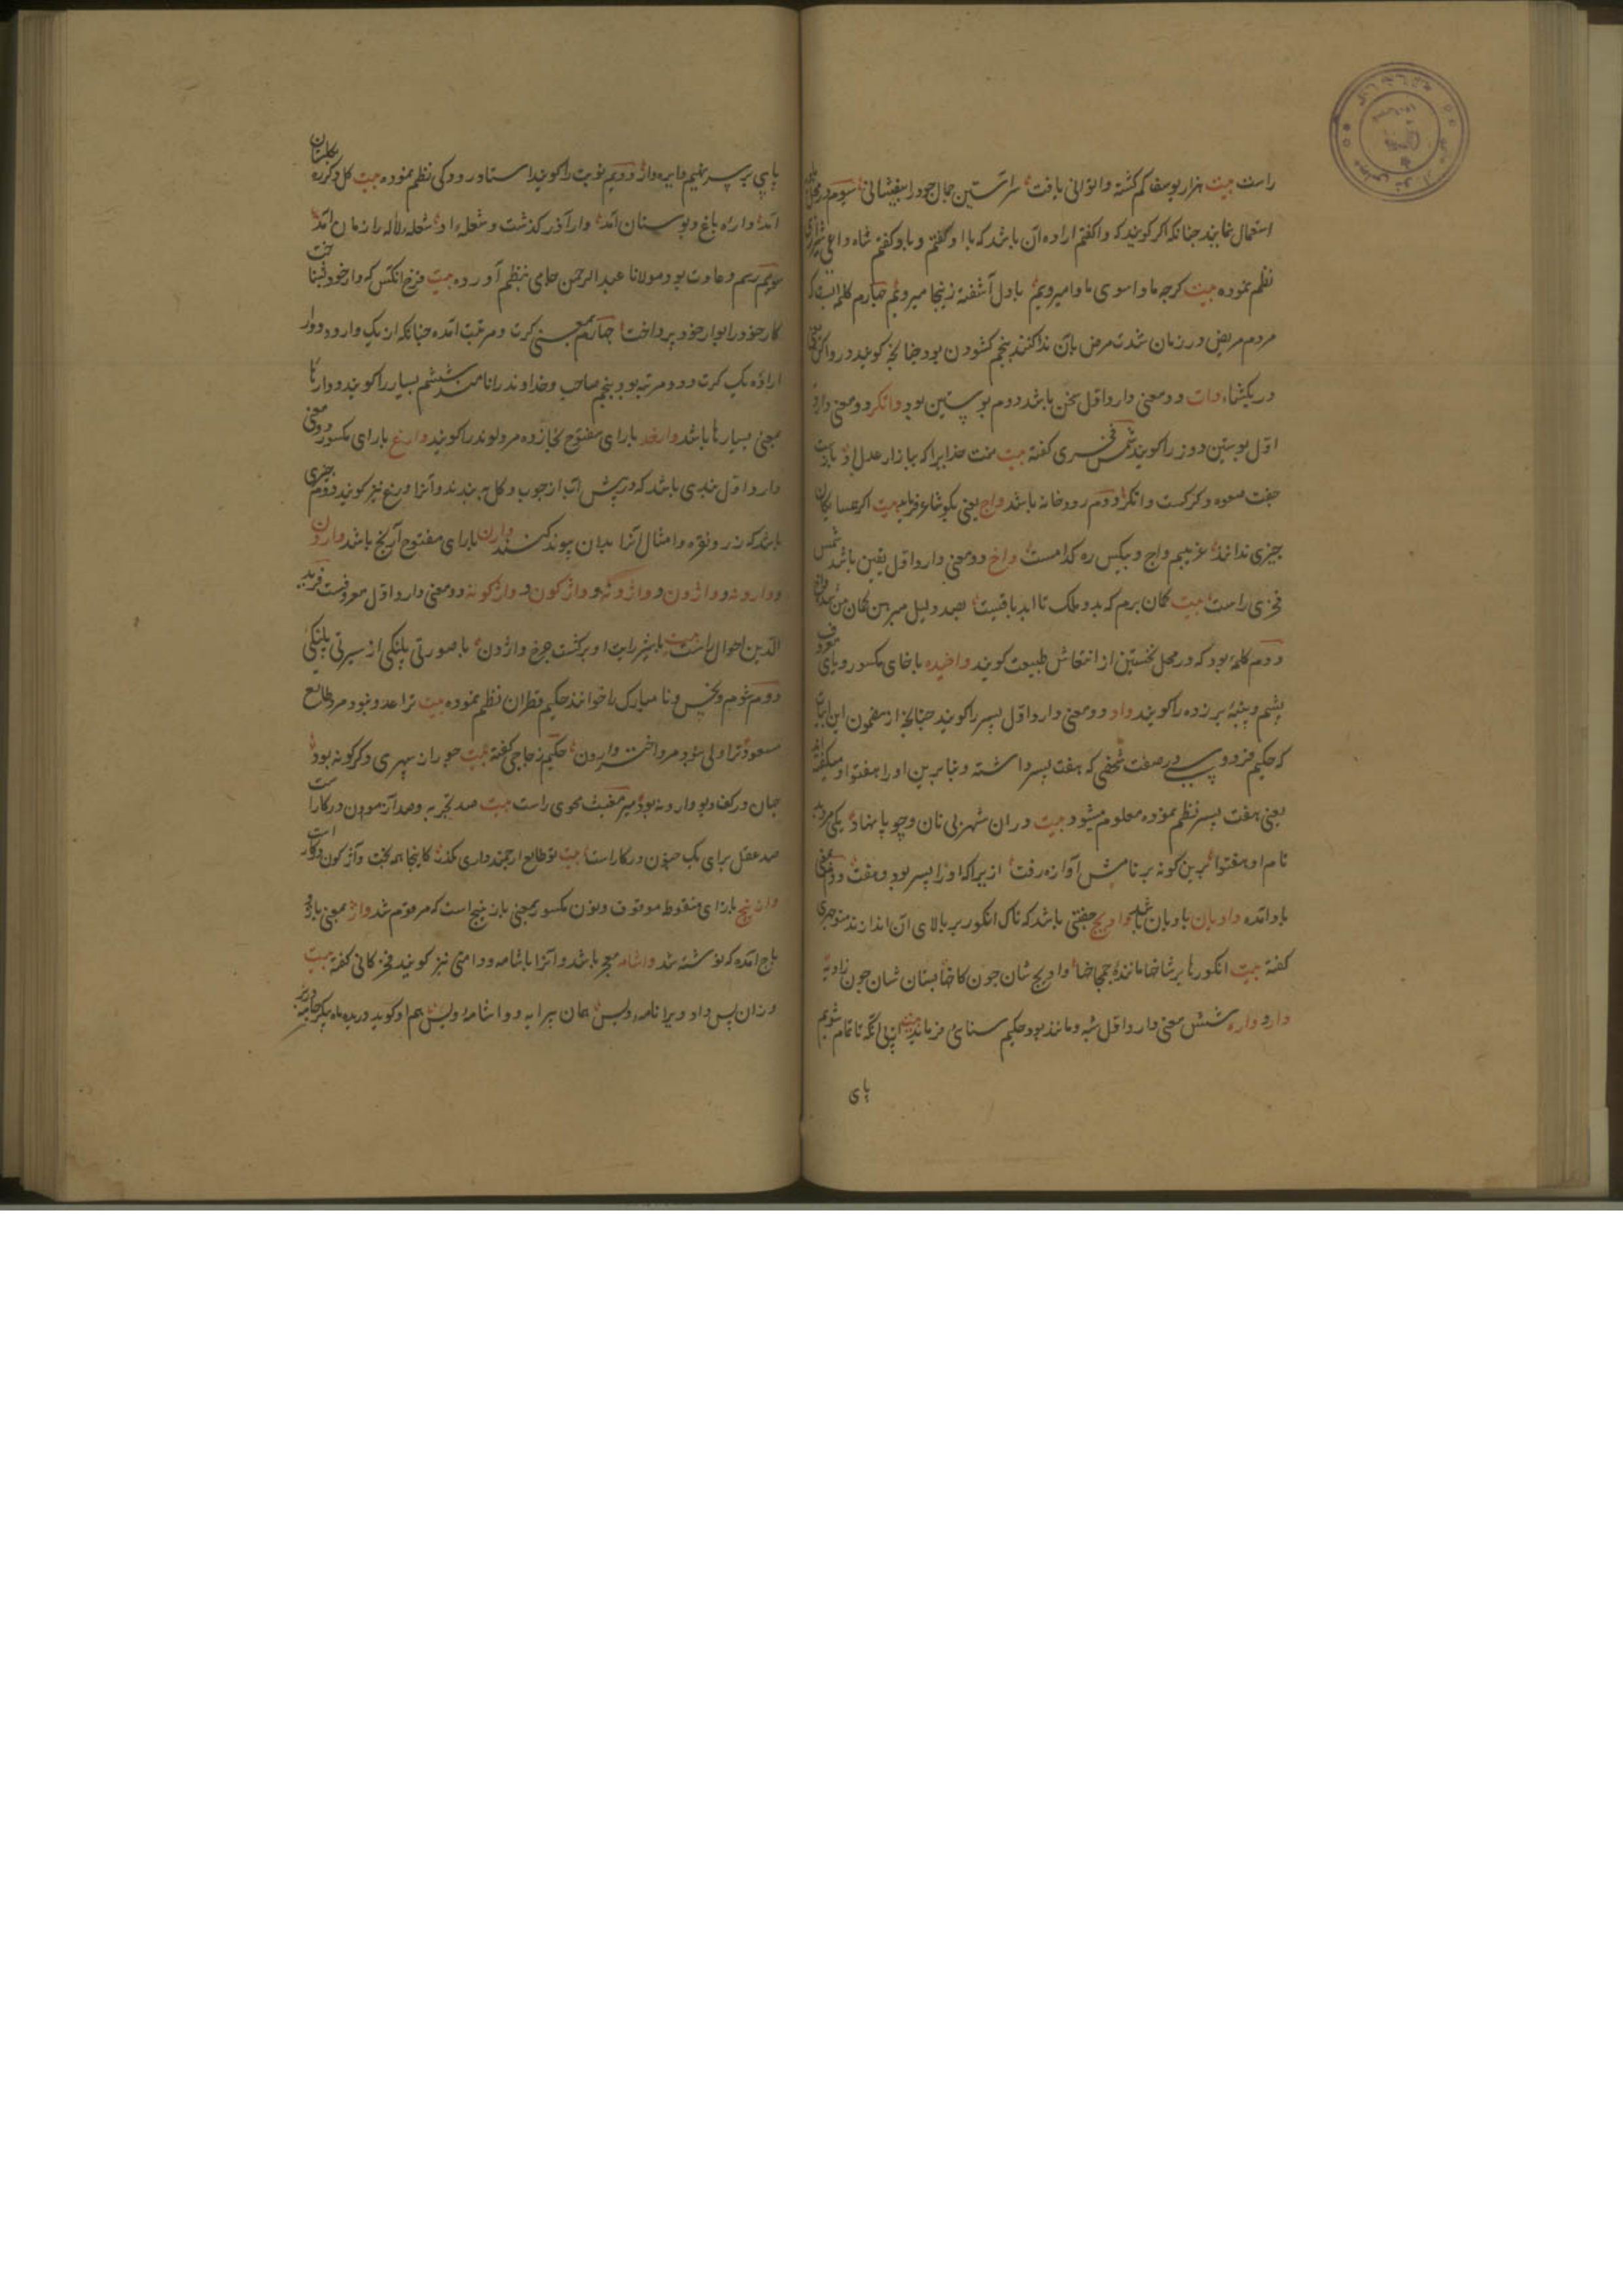 راست بیت هزار یوسف کم کشته وا توانی یافت سر آستین جمال خود را بیفشانی سوم در محل
استعمال نمایند چنانکه اکر کویند که وا کفتم اراده آن باشد که با او کفتم و باو کفتم شاه داعی شیرازی
نظم نموده بیت کرچه ما وا سوی ما وا میرویم با دل آشفته زینجا میرویم چهارم کلمه ایست که
مردم مریض در زمان شدت مرض بآن ندا کنند پنجم کشودن بود چنانچه کویند در وا کن یعنی
در بکشا وات دو معنی دارد اول سخن باشد دوم پوستین بود واتکر دو معنی دارد
اول پوستین دوز را کویند شمس فخری کفته بیت منت خدایرا که ببازار عدل او
جفت صعوه و کرکست واتکر دوم رودخانه باشد واج یعنی بکو شاعر فرماید بیت اکر
چیزی نداند غریبم واج و بیکس ره کدامست واخ دو معنی دارد اول یقین باشد شمس
فخری راست بیت کمان برم که بدو ملک تا ابد باقیست بصد دلیل مبرهن کمان من شد واخ
دوم کلمه بود که در محل نخستین از انتعاش طبیعت کویند واخیده با خای مکسور و یای معروف
پشم و پنبه بر زده را کویند واد دو معنی دارد اول پسر را کویند چنانچه از مضمون این ابیات
که حکیم فردوسی در صفت شخصی که هفت پسر داشته و بنا برین او را هفتواد میکفته اند
یعنی هفت پسر نظم نموده معلوم میشود بیت در ان شهر بی نان و چوبا نهاد یکی مرد بد
نام او هفتواد برین کونه بر نامش آوازه رفت ازیرا که او را پسر بود هفت دوم بمعنی
باد آمده وادبان بادبان باشد وادیج جفتی باشد که تاک انکور بر بالای آن اندازند منوچهری
کفته بیت انکورها بر شاخها مانندۀ چمچاخها وادیج شان چون کاخها بستان شان چون زاویه
وار و واره شش معنی دارد اول شبه و مانند بود حکیم سنائی فرماید بیت از پی انکه تا تمام شویم
پای
پای بر سر نهیم دایره وار دویم نوبت را کویند استاد رودکی نظم نموده بیت کل دکر ره بکلستان
آمد واره باغ و بوستان آمد وار آذر کذشت و شعله او شعله لاله را زمان آمد
سویم رسم و عادت بود مولانا عبد الرحمن جامی بنظم آورده بیت فرخ آنکس که وار خود بشناخت
کار خود را بوار خود پرداخت چهارم بمعنی کرت و مرتبت آمده چنانکه از یک وار و دو وار
اراده یک کرت و دو مرتبه بود پنجم صاحب و خداوند را نامند ششم بسیار را کویند و وارها
بمعنی بسیارها باشد وارغد با رای مفتوح مرد لوند را کویند وارغ با رای مکسور دو معنی
دارد اول بندی باشد که در پیش آب از چوب و کل به بندند و آنرا ورغ نیز کویند دوم چیزی
باشد که زر و نقره و امثال آنرا بدان پیوند کنند وارن با رای مفتوح آرنج باشد وارون
و وارونه و واژون و واژونه و واژکون و واژکونه دو معنی دارد اول معروفست فرید
الدین احوال راست بیت با شیر رایت او برکشت چرخ واژون با صورتی پلنکی از سیرتی پلنکی
دوم شوم و نحس و نا مبارک را خوانند حکیم قطران نظم نموده بیت ترا عدو نبود مرد طالع
مسعود ترا ولی نبود مرد اختر وارون حکیم زجاجی کفته بیت چو رانه سپهری دکر کونه بود
جهان در کف دیو وارونه بود میر مغیث محوی راست بیت صد تجربه و صد آزمودن درکار است
صد عقل برای یک جنون درکار است بیت تو طالع ارجمند داری مکذر کاینجا همه بخت واژکون درکار است
وازنیج با زای منقوط موقوف و نون مکسور بمعنی بازنیج است که مرقوم شد واژ بمعنی باژ و
باج آمده که نوشته شد واشامه معجر باشد و آنرا باشامه و دامنی نیز کویند فخر کانی کفته بیت
وزان پس داد ویرا نامه ویس همان پیرایه و واشامه ویس هم او کوید دریده ماه پیکر جامه در بر